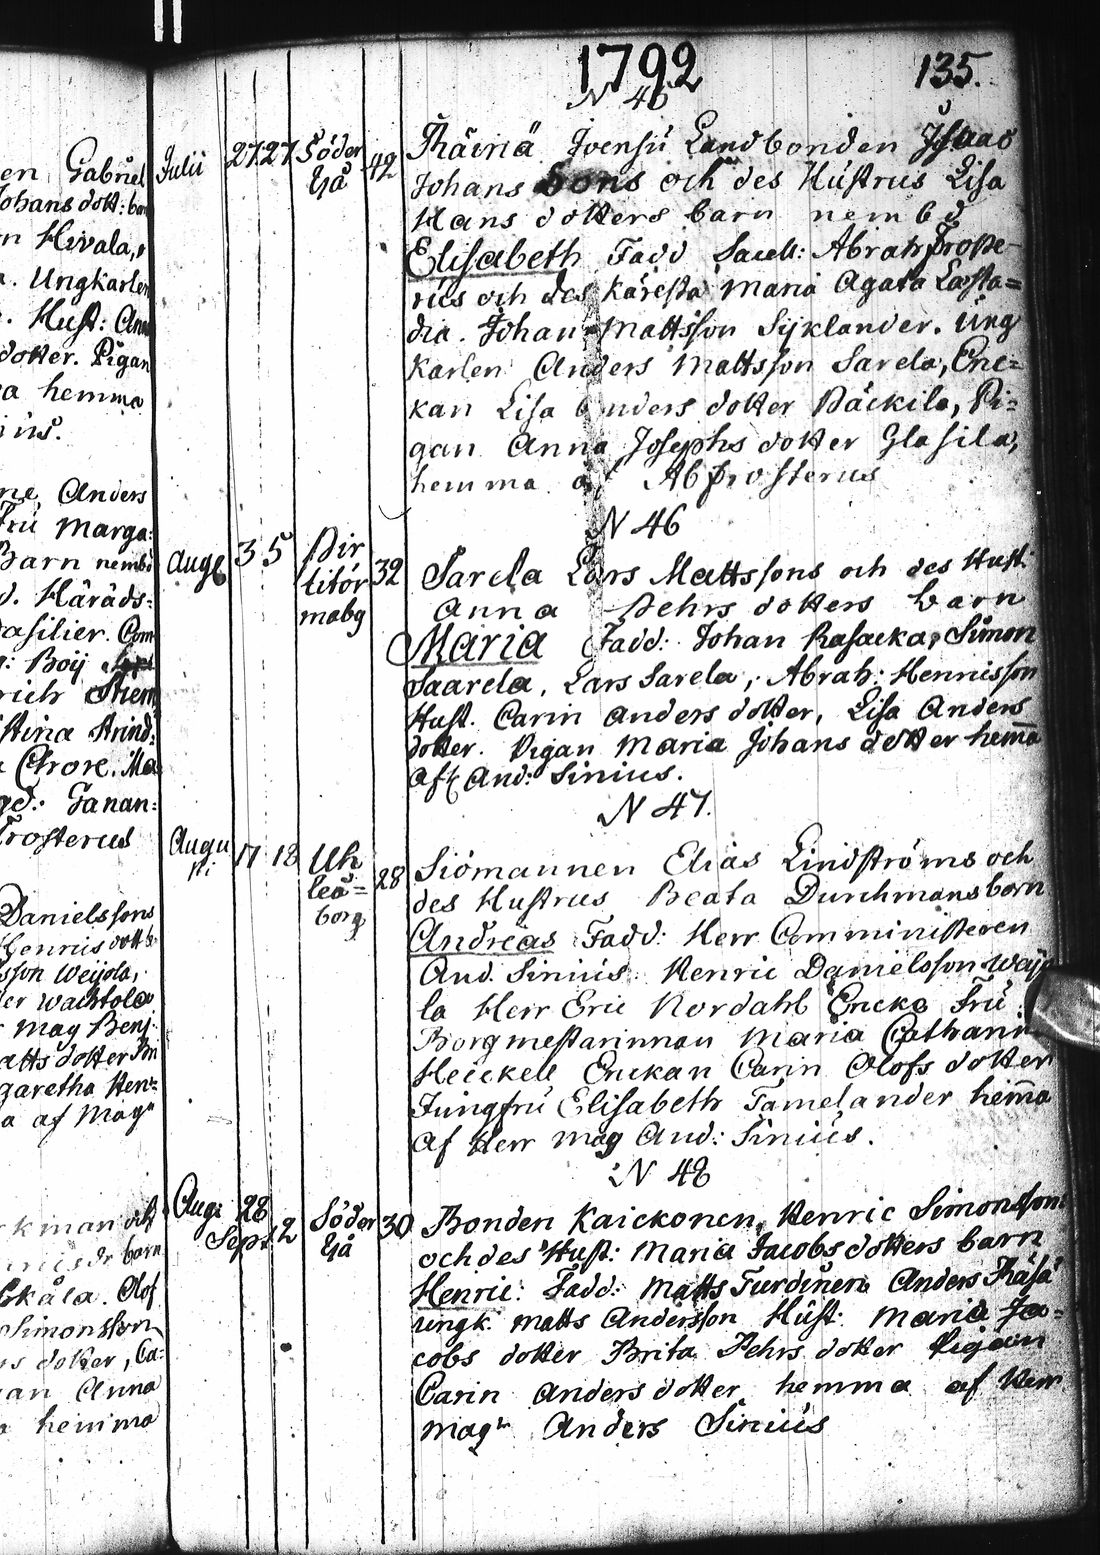 1792
135.
N 45
Julii 27 27 Söder
å 42
Räinä Landbonden Isaac
Johans Sons och des Hustrus Lisa
Hans dotters barn nembd
Elisabeth Fadd Sacell: Abrah Froste-
rus och des käresta Maria Agata Lasta=
dia. Johan Mattsson Sijklander. Ung
karlen Anders Mattsson Sarela, Enc=
kan Lisa Anders dotter Päckilä, Pi=
gan Anna Josephs dotter Glasila,
hemma af Ab Frosterus
N 46
Aug 3 5 Bir
litör
mabg 32
Sarela Lars Mattssons och des Hust
Anna Pehrs dotters barn
Maria Fadd: Johan Rasacka, Simon
Saarela, Lars Sarela, Abrah: Hennisson
Hust. Carin Anders dotter, Lisa Anders
dotter. Pigan Maria Johans dotter hem̄a
af And: Sinius.
N 47.
Augu
sti 17 18 Uh
leå=
borg 28
Siömannen Elias Lindströms och
des Hustrus Beata Durchmans barn
Andreas Fadd: Herr Comministeren
And. Sinius Henric Danielsson Weijo
la Herr Eric Nordahl Encke Fru
Borgmestarinnan Maria Catharin
Heickell Enckan Carin Olofs dotter
Jungfru Elisabeth Tamelander hem̄a
af Herr Mag And: Sinius.
N 48
Aug: 28
Sept. 2 Söder
å 30
Bonden Kaickonen, Henric Simonsson:
och des Hust: Maria Jacobs dotters barn
Henric: Fadd: Matts Turdinen Anders Räsä
ungk. Matts Andersson Hust: Maria Ja=
cobs dotter Brita Pehrs dotter Pigan
Carin Anders dotter hemma af Herr
Magr Anders Sinius
en Gabriel
Johans dott: bar
n Hivala,
. Ungkarlen
. Hust: Ann
dotter. Pigan
a hemma
ius.
ne Anders
Fru Marga:
Barn nembd
d. Häräds:
asilier. Com
: Boij
rich
stina
Chore. Ma
Ganan:
Frosterus
Danielssons
Henrics dott
sson Weijola,
er
Mag Benj
atts dotter
garetha Hen=
a af Mag
rkman och
barn
Skåla. Olof
Simonsson
s dotter, Ca:
an Anna
hemma